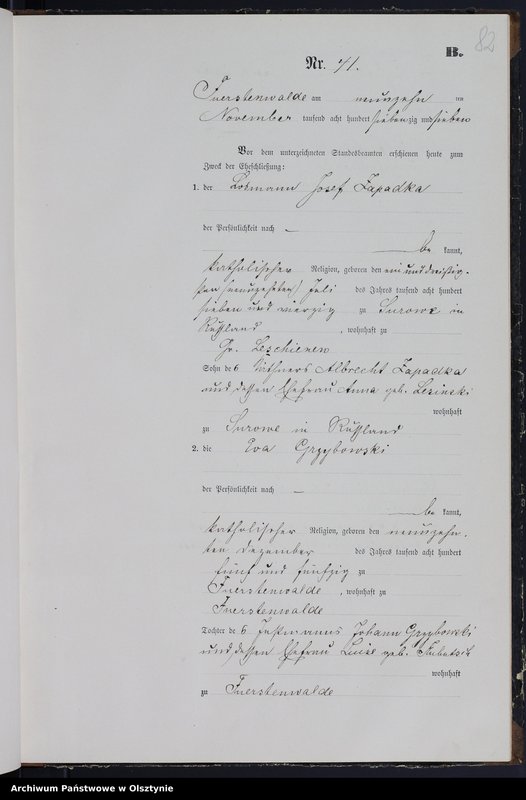 82
B.
Nr. 41.
Fuerstenwalde am neunzehn ten
November tausend acht hundert siebenzig und sieben
Vor dem unterzeichneten Standesbeamten erschienen heute zum
Zweck der Eheschließung:
1. der Losmann Josef Zapadka
der Persönlichkeit nach —
be kannt,
katholischer Religion, geboren den ein und dreißig-
sten Juli des Jahres tausend acht hundert
sieben und vierzig zu Surowe in
Rußland, wohnhaft zu
Gr. Leschienen
Sohn des Käthners Albrecht Zapadka
und dessen Ehefrau Anna geb. Lesinski
wohnhaft
zu Surowe in Rußland
2. die Eva Grzybowski
der Persönlichkeit nach —
be kannt,
katholischer Religion, geboren den neunzehn-
ten Dezember des Jahres tausend acht hundert
fünf und fünfzig zu
Fuerstenwalde, wohnhaft zu
Fuerstenwalde
Tochter des Johann Grzybowski
und dessen Ehefrau Luise geb.
wohnhaft
zu Fuerstenwalde
Archiwum Państwowe w Olsztynie